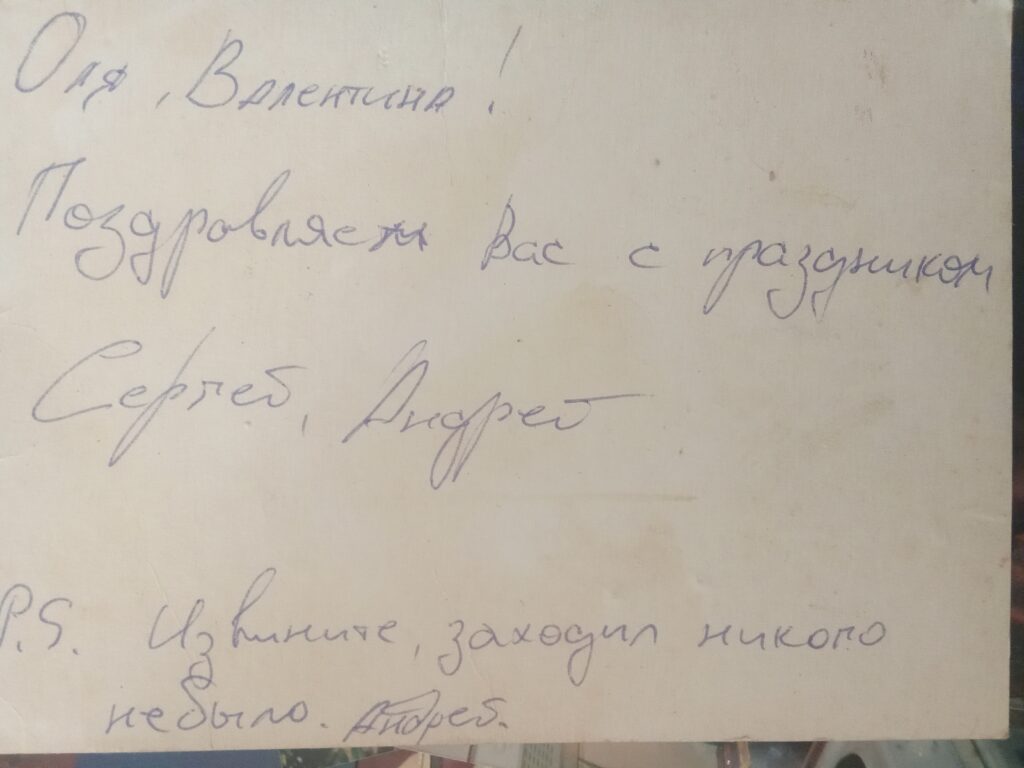 Оля, Валентина!
Поздравляем Вас с праздником
Сергей, Андрей
P.S. Извините, заходил никого
небыло. Андрей.